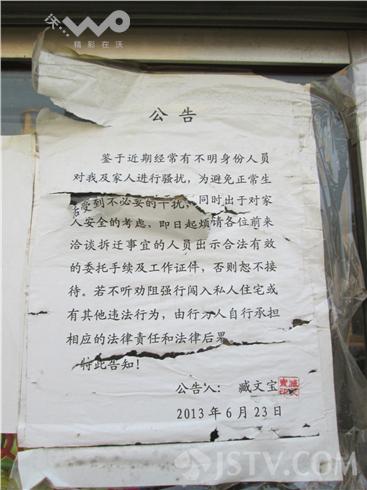 沃
WO
精彩在沃
公告
鉴于近期经常有不明身份人员
对我及家人进行骚扰，为避免正常生
活受到不必要的干扰，同时出于对家
人安全的考虑，即日起烦请各位前来
洽谈拆迁事宜的人员出示合法有效
的委托手续及工作证件，否则恕不接
待。若不听劝阻强行闯入私人住宅或
有其他违法行为，由行为人自行承担
相应的法律责任和法律后果
特此告知！
公告人： 臧文宝
2013年6月23日
JSTV.COM